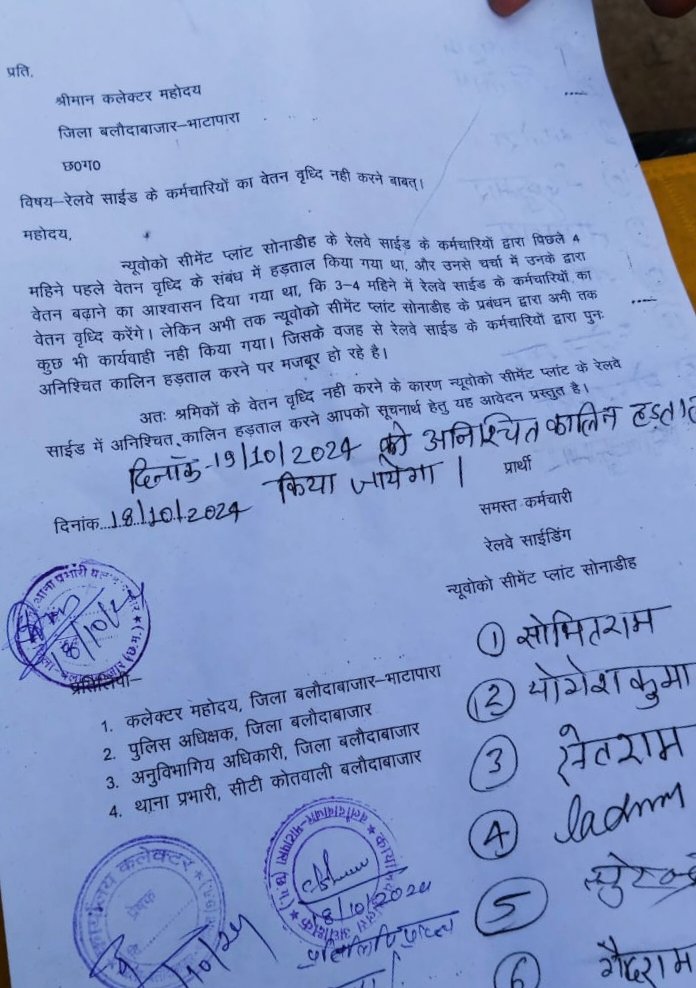 प्रति,
श्रीमान कलेक्टर महोदय
जिला बलौदाबाजार–भाटापारा
छ0ग0
विषय–रेलवे साईड के कर्मचारियों का वेतन वृध्दि नही करने बाबत्।
महोदय,
न्यूवोको सीमेंट प्लांट सोनाडीह के रेलवे साईड के कर्मचारियों द्वारा पिछले 4
महिने पहले वेतन वृध्दि के संबंध में हड़ताल किया गया था, और उनसे चर्चा में उनके द्वारा
वेतन बढ़ाने का आश्वासन दिया गया था, कि 3–4 महिने में रेलवे साईड के कर्मचारियों का
वेतन वृध्दि करेंगे। लेकिन अभी तक न्यूवोको सीमेंट प्लांट सोनाडीह के प्रबंधन द्वारा अभी तक
कुछ भी कार्यवाही नही किया गया। जिसके वजह से रेलवे साईड के कर्मचारियों द्वारा पुनः
अनिश्चित कालिन हड़ताल करने पर मजबूर हो रहे है।
अतः श्रमिकों के वेतन वृध्दि नही करने के कारण न्यूवोको सीमेंट प्लांट के रेलवे
साईड में अनिश्चित कालिन हड़ताल करने आपको सूचनार्थ हेतु यह आवेदन प्रस्तुत है।
दिनाँक-19/10/2024 को अनिश्चित कालिन हड़ताल
किया जायेगा।
प्रार्थी
दिनांक...18/10/2024
समस्त कर्मचारी
रेलवे साईडिंग
न्यूवोको सीमेंट प्लांट सोनाडीह
थाना प्रभारी
18/10/24
① सोमितराम
② योगेश कुमा
③ सेतराम
④
⑤
⑥ गैंदराम
प्रतिलिपी–
1. कलेक्टर महोदय, जिला बलौदाबाजार–भाटापारा
2. पुलिस अधिक्षक, जिला बलौदाबाजार
3. अनुविभागिय अधिकारी, जिला बलौदाबाजार
4. थाना प्रभारी, सीटी कोतवाली बलौदाबाजार
कार्यालय कलेक्टर
प्रेषक
/10/24
बलौदाबाजार-भाटापारा (छ.ग.)
18/10/2024